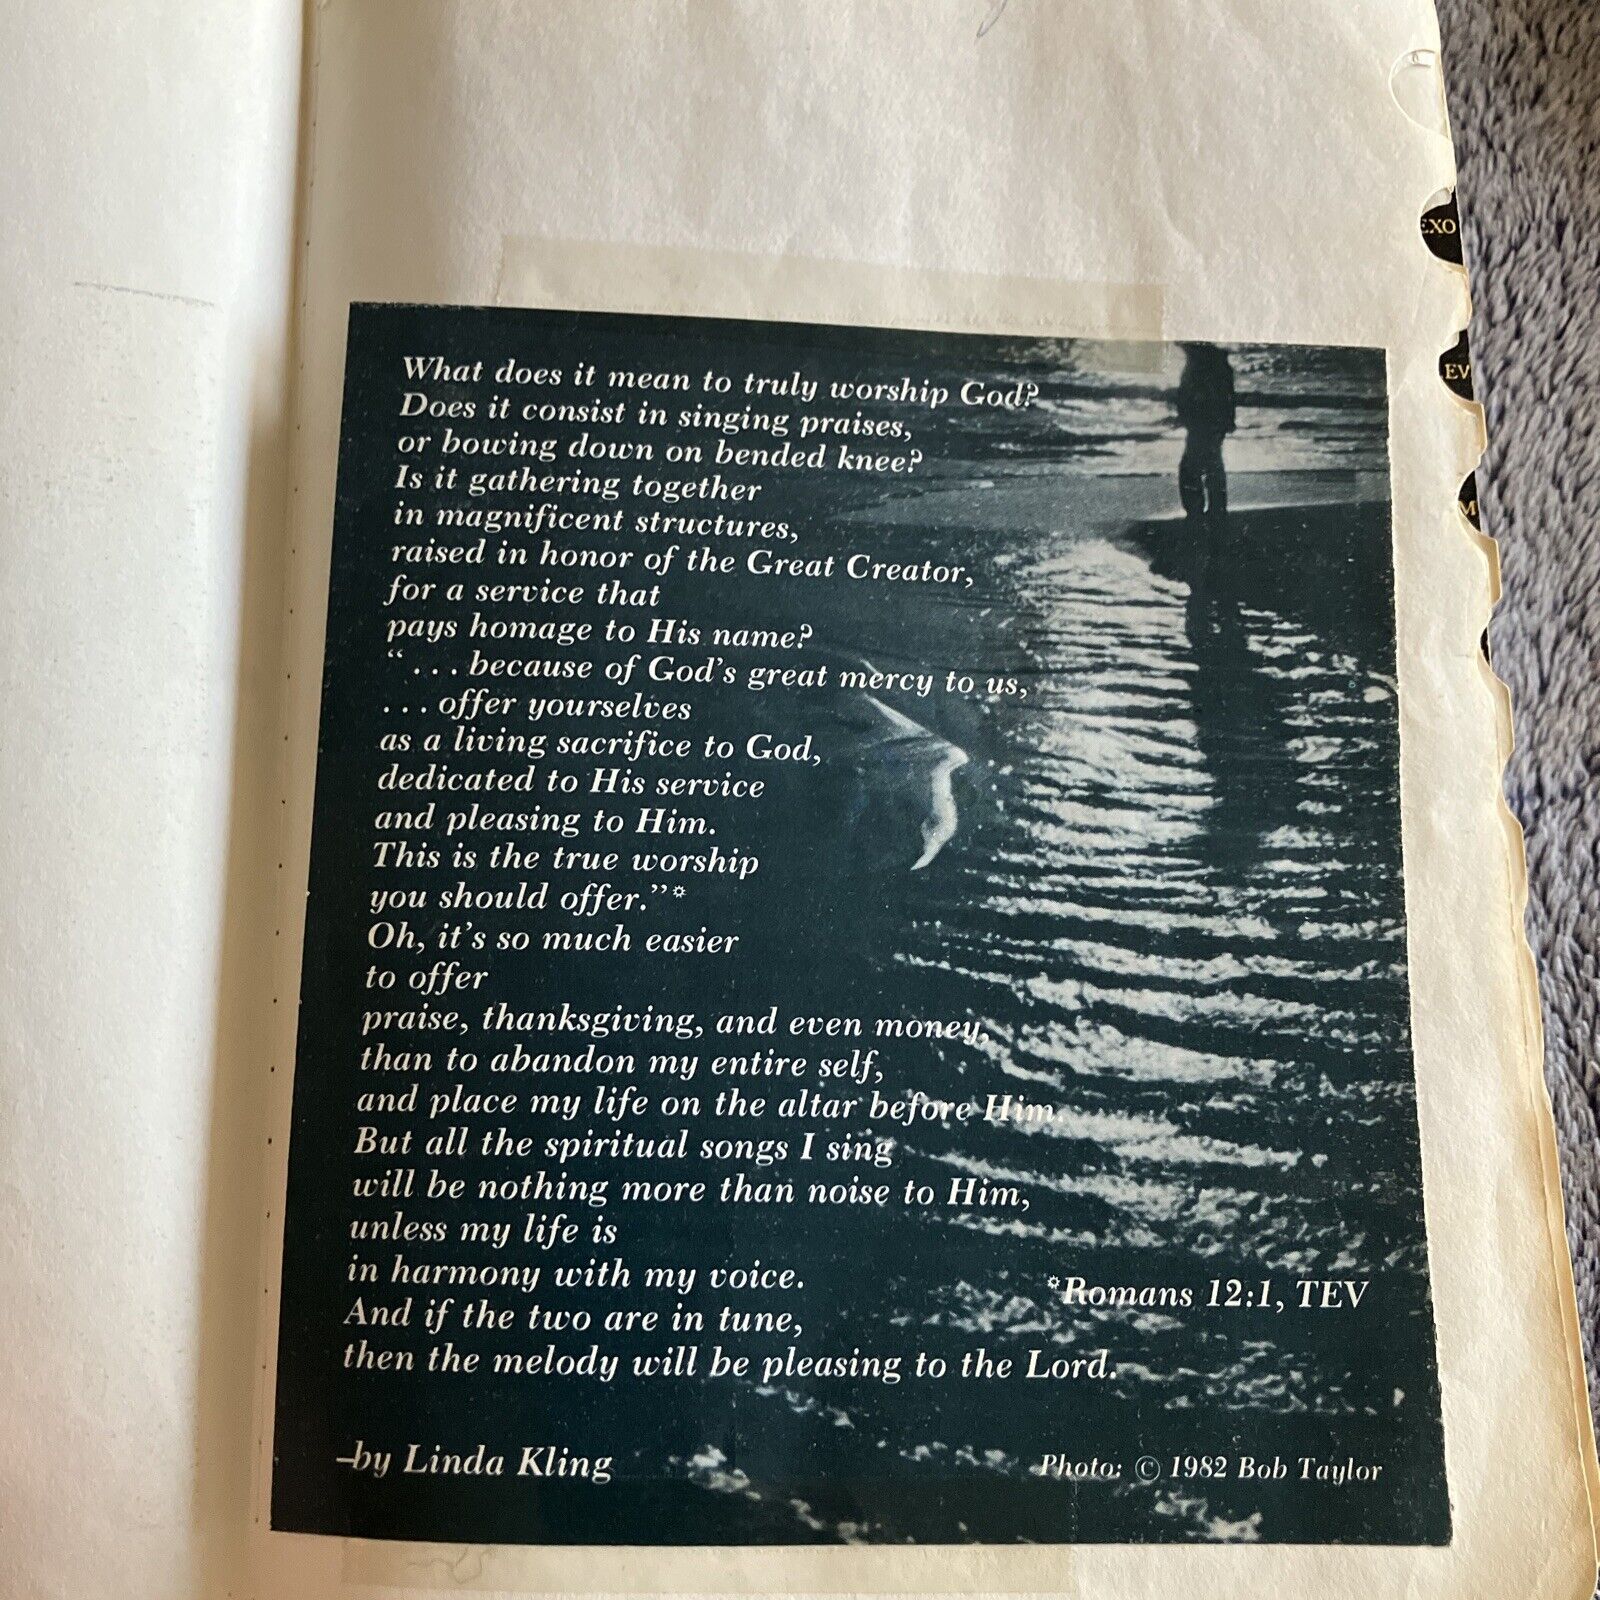 What does it mean to truly worship God?
Does it consist in singing praises,
or bowing down on bended knee?
Is it gathering together
in magnificent structures,
raised in honor of the Great Creator,
for a service that
pays homage to His name?
“ . . . because of God's great mercy to us,
. . . offer yourselves
as a living sacrifice to God,
dedicated to His service
and pleasing to Him.
This is the true worship
you should offer.”*
Oh, it's so much easier
to offer
praise, thanksgiving, and even money,
than to abandon my entire self,
and place my life on the altar before Him.
But all the spiritual songs I sing
will be nothing more than noise to Him,
unless my life is
in harmony with my voice.
*Romans 12:1, TEV
And if the two are in tune,
then the melody will be pleasing to the Lord.
—by Linda Kling
Photo: © 1982 Bob Taylor
EXO
EV
M